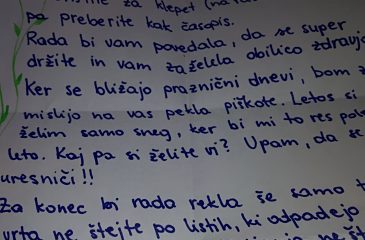 za klepet (na
pa preberite kak časopis.
Rada bi vam povedala, da se super
držite in vam zaželela obilico zdravja
Ker se bližajo praznični dnevi, bom z
mislijo na vas pekla piškote. Letos si
želim samo sneg, ker bi mi to res pole
leto. Kaj pa si želite vi? Upam, da se
uresniči!!
Za konec bi rada rekla še samo t
vrta ne štejte po listih, ki odpadejo